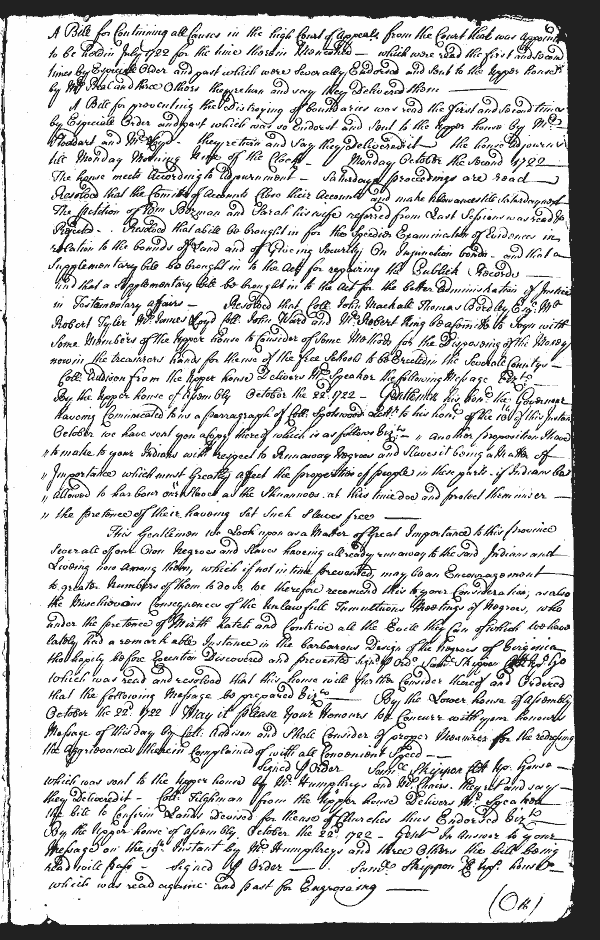 A Bill for Continuing all Causes in the high Court of Appeals from the Court that was Appoint
to be held in July 1722 for the time therein Mentioned — which were read the first and Second
times by Especiale Order and past which were Severally Endorsed and Sent to the Upper house
by Mr. and three Others they return and say they delivered them
A Bill for preventing the Distroying of Boundaries was read the first and second times
by Especiale Order and past which was so Endorst and sent to the upper house by Mr.
Stoddart and Mr. Lloyd — they return and say they delivered it — the house adjourns
till Monday Morning of the Clock — Monday October the Second 1722
The house meets According to adjournment — Saturdays proceedings are read
Resolved that the Comittee of Accounts Close their Accounts and make allowance till Saturday next
The petition of Wm and Sarah his wife referred from Last Sessions was read &
Rejected — Resolved that a bill be brought in for the Speedier Examination of Evidences in
relation to the bounds of Land and of Giveing Security On Injunction bonds — and that a
Supplementary bill be brought in to the Act for repairing the Publick Records
and that a Supplementary bill be brought in to the Act for the better Administration of Justice
in Testamentary affairs — Resolved that Coll. John Mackall Thomas Bordley Esqr. Mr.
Robert Tyler Mr. James Lloyd Coll. John Ward and Mr. Robert King be to Joyn with
Some Members of the Upper house to Consider of some Methods for the Disposing of the Money
now in the treasurers hands for the use of the free Schools to be Erected in the Severall Countys —
Coll. Addison from the Upper house Delivers Mr. Speaker the following Message Vizt.
By the Upper house of Assembly October the 22d. 1722 — Gentlemen his honr. the Governor
Having Comunicated to us a parragraph of Coll. Spotswoods Lettr. to his honr. of the of this Instant
October we have sent you a Copy thereof which is as follows Vizt. — " Another proposition I have
" to make to your Indians with respect to Runaway Negroes and Slaves it being a Matter off
" Importance which must Greatly affect the properties of people in these parts if Indians be
" allowed to harbour our Slaves, as the Shuannoes at this time doe and protect them under
" the pretence of their having Set Such Slaves free
This Gentlemen we Look upon as a Matter of Great Importance to this province
severall of our Own Negroes and Slaves haveing allready run away to the said Indians and
Liveing now among them, which if not in time prevented, may be an Encouragement
to greater Numbers of them to do so, we therefore recomend this to your Consideration, as also
the Mischievous Consequences of the Unlawfull Tumultious Meetings of Negroes, who
under the pretence of Mirth hatch and Contrive all the Evill they Can of which we have
lately had a remarkable Instance in the barbarous Design of the negroes of Virginia
that hapily before Execution Discovered and prevented Signd p Ord. Saml. Skippon Cl Up. ho
Which was read and resolved that this house will further Consider thereof and Ordered
that the following Message be prepared Vizt. — By the Lower house of Assembly
October the 22d. 1722 May it please Your Honours We Concurr with your honours
Message of this day by Coll. Addison and Shall Consider of proper Measures for the redressing
the Aggrievances therein Complained of with all Convenient Speed —
Signed p Order Saml. Skippon Clk Up. house —
which was sent to the Upper house by Mr. Humphrys and Mr. they retn. and say
they Delivered it — Coll. Tilghman from the Upper house Delivers Mr. Speaker
the bill to Confirm Lands devised for the use of Churches thus Endorsed Vizt.
By the Upper house of assembly October the 22d. 1722 — Gentn. In Answer to your
Message on the 19th. Instant by Mr. Humphreys and three Others the bill being
read will pass — Signed p Order — Saml. Skippon Cl upr. house —
which was read againe and past for Engrossing —